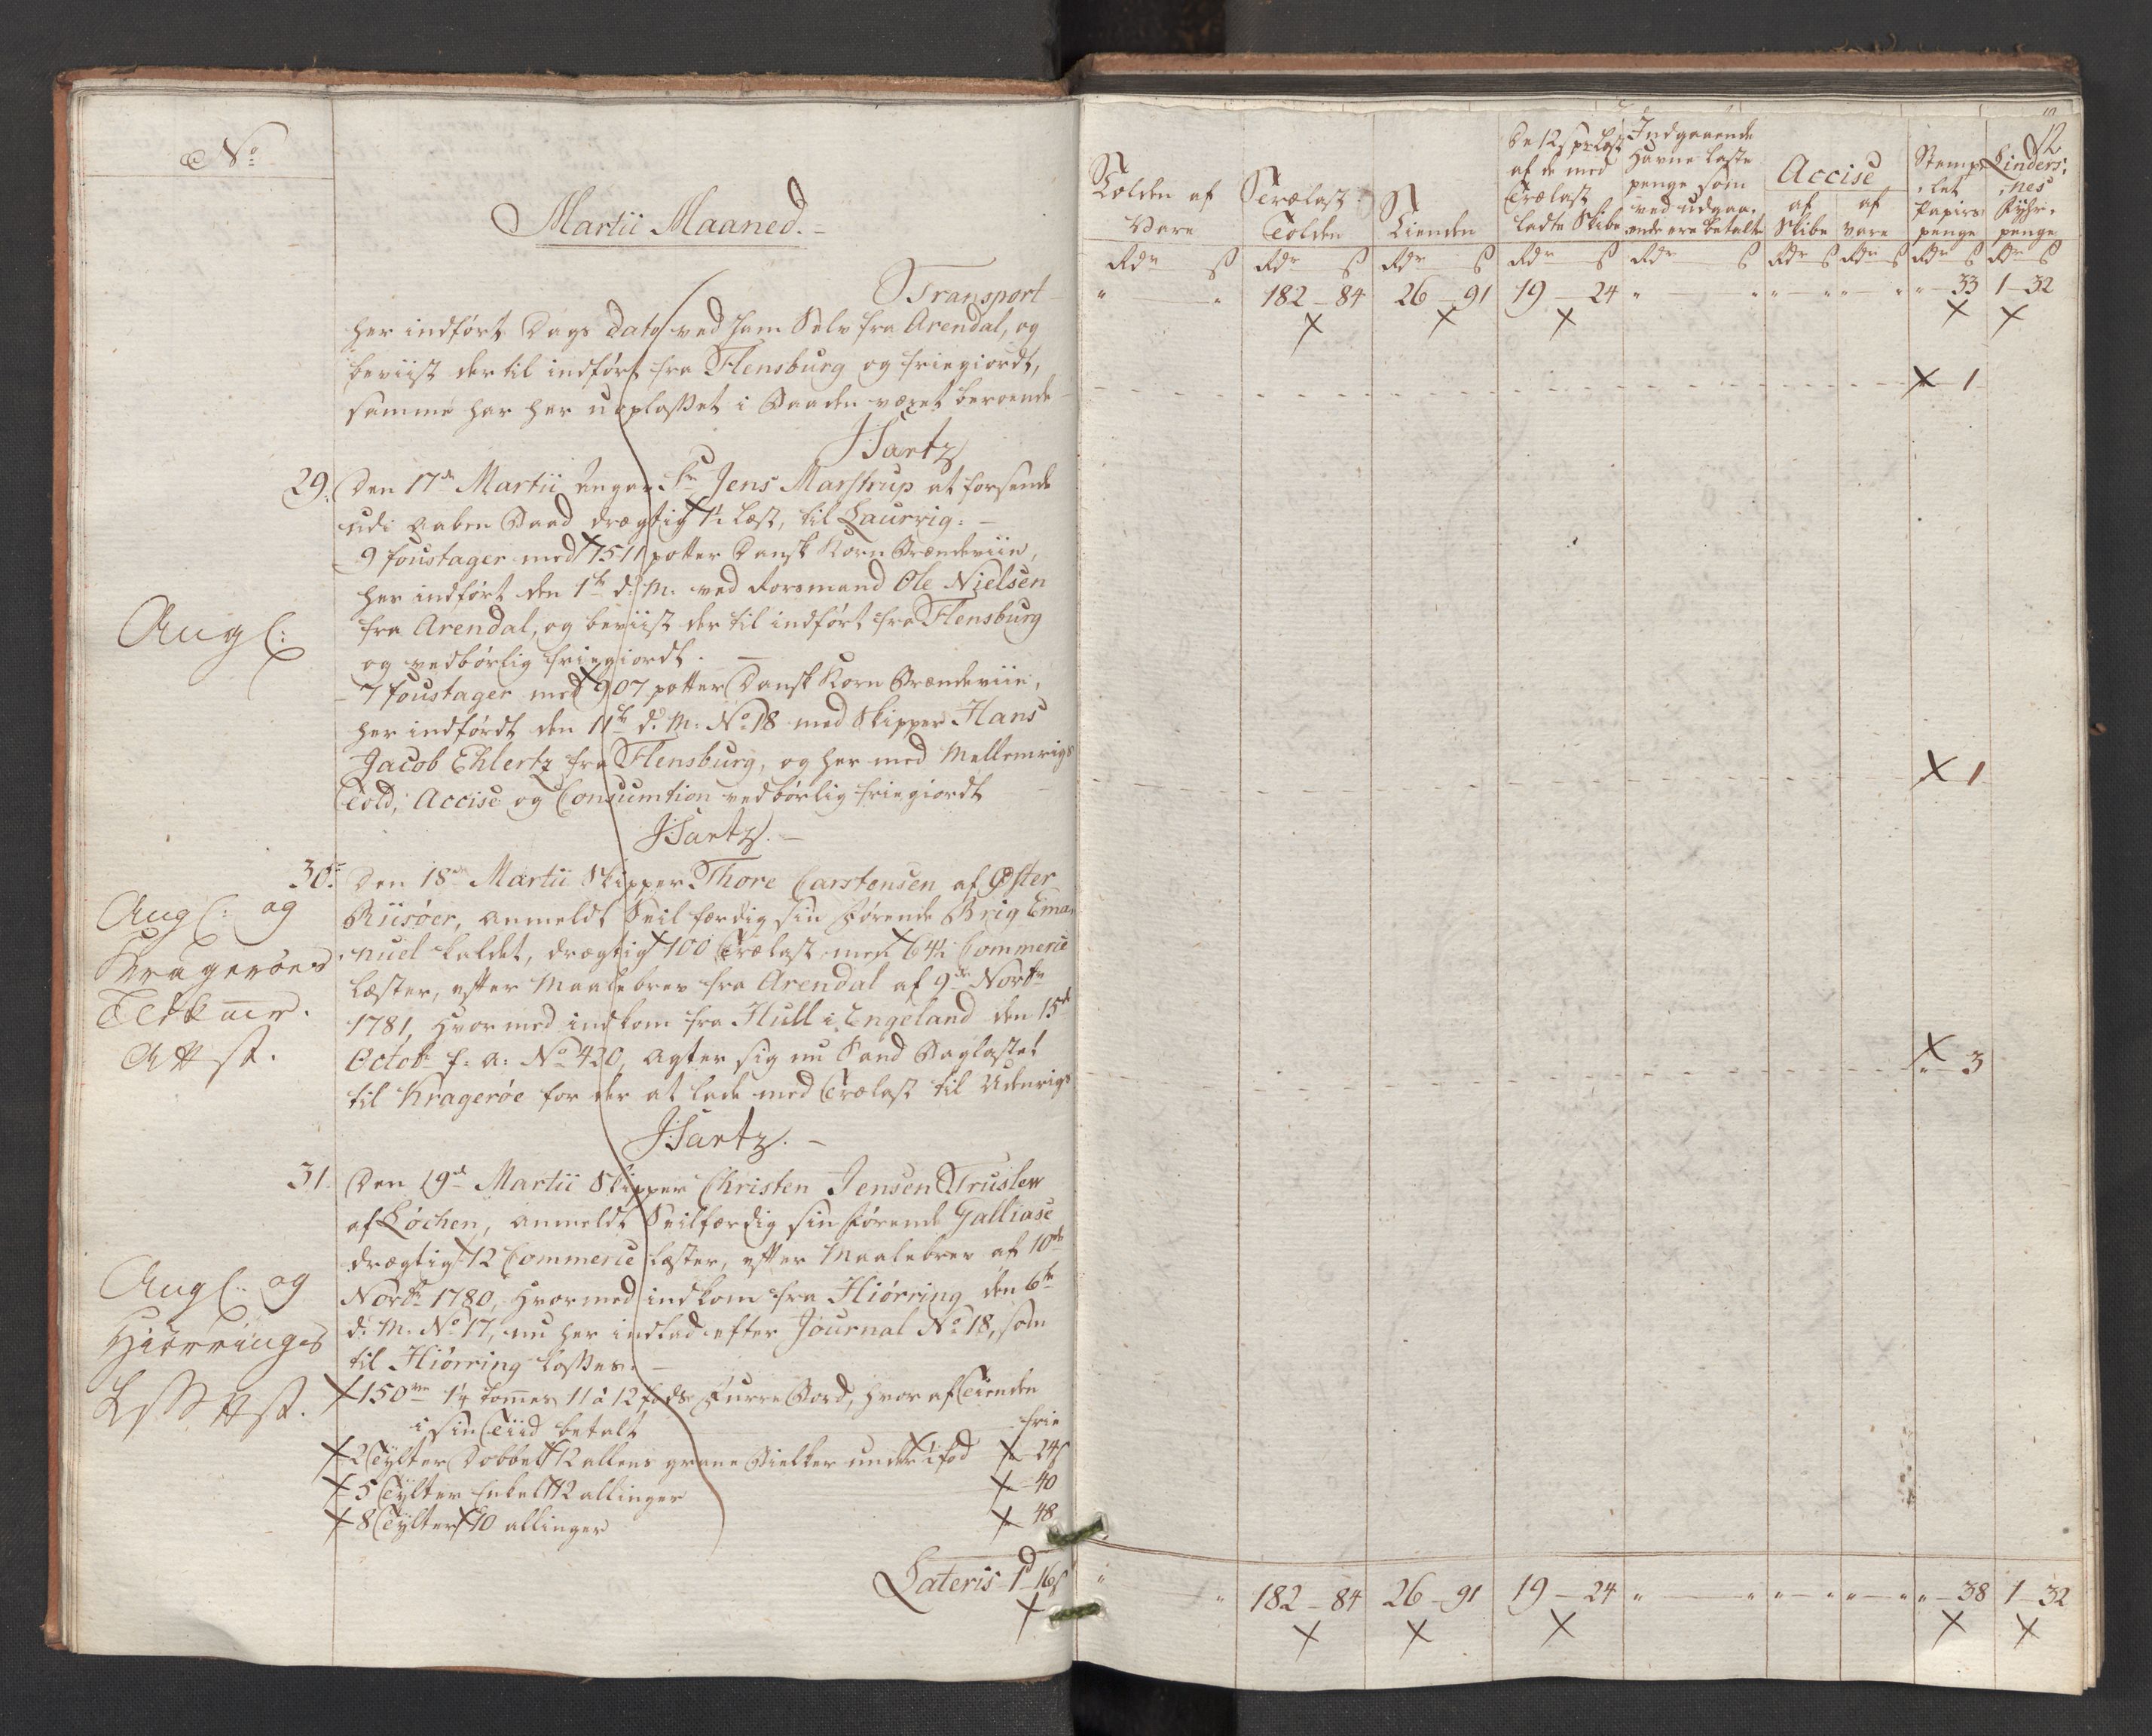 No
Martii Maaned.
Transport
her indført Dags dato ved ham Selv fra Arendal, og
beviist der til indført fra Flensburg og friegiordt,
samme har her uoplosset i Baaden været beroende
JSartz
29. Den 17de Martii Angav Sr Jens Marstrup at forsende
udi aaben Baad drægtig 1½ Læst, til Laurvig.
9 foustager med 1511 potter Dansk Korn Brændeviin,
her indført den 1te d: M. ved Formand Ole Nielsen
fra Arendal, og beviist der til indført fra Flensburg
og vedbørlig friegiordt.
7 foustager med 907 potter Dansk Korn Brændeviin,
her indførdt den 11te d: M: No 18 med Skipper Hans
Jacob Ehlertz fra Flensburg, og her med Mellemrigs
Told, Accise og Consumtion vedbørlig friegiordt
JSartz.
Angl:
30. Den 18de Martii Skipper Thore Carstensen af Øster
Riisøer, anmeldt Seilfærdig sin førende Brig Ema-
nuel kaldet, drægtig 100 Trælast men 64½ Commerce
Læster, efter Maalebrev fra Arendal af 9de Novbr
1781, hvormed indkom fra Hull i Engeland den 15de
Octobr f: a: No 420, agter sig nu Sand Baglastet
til Kragerøe for der at lade med Trælast til Udenrigs
JSartz.
Angl: og
Kragerøes
Attst.
31. Den 19de Martii Skipper Christen Jensen Truslew
af Løchen, anmeldt Seilfærdig sin førende Galliase
drægtig 12 Commerce Læster, efter Maalebrev af 10de
Novbr 1780, hvormed indkom fra Hiørring den 6te
d: M. No 17, nu her indlad efter Journal No 18, som
til Hiørring losses.
150 1¼ tommer 11 à 12 fods Furre Bord, hvor af Tienden
i sin Tiid betalt frie
2 Tylter Dobbelt 12 allens grane Bielker under 1 fod 24s
5 Tylter Enkelt 12 allinger 40
8 Tylter 10 allinger 48
Lateris 1d 16s
Angl: og
Hiørrings
Attst.
12
Tolden af Vare
Trælast Tolden
Tienden
De 12 s pr Læst af de med Trælast ladte Skibe
Indgaaende Havne laste penge som ved udgaaende ere betalte
Accise
af Skibe
af vare
Stemplet Papirs penge
Lindersnes Fyhr penge
Rdr s Rdr s Rdr s Rdr s Rdr s Rdr s Rdr s Rdr s Rdr s
" " 182 - 84 26 - 91 19 - 24 " " " " " " " - 33 1 - 32
1
1
" - 3
" " 182 - 84 26 - 91 19 - 24 " " " " " " " - 38 1 - 32